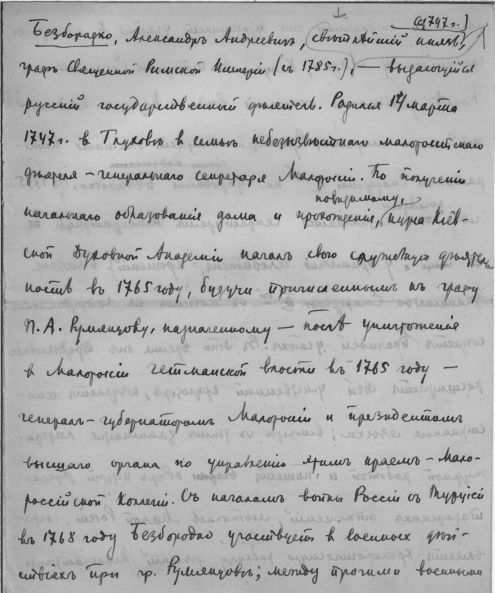 (с 1797 г.)
Безбородко, Александръ Андреевичъ, свѣтлѣйшій князь,
графъ Священной Римской Имперіи (съ 1785 г.), — выдающійся
русскій государственный дѣятель. Родился 14 марта
1747 г. в Глуховѣ в семьѣ небезызвѣстнаго малороссійскаго
дѣятеля – генеральнаго секретаря Малороссіи. По полученіи
повидимому,
начальнаго образованія дома и прохожденіи, курса Кіев-
ской Духовной Академіи началъ свою служебную дѣятель-
ность въ 1765 году, будучи причисленнымъ къ графу
П. А. Румянцову, назначенному — послѣ уничтоженія
в Малороссіи гетманской власти въ 1765 году —
генералъ-губернаторомъ Малороссіи и президентомъ
высшаго органа по управленію этимъ краемъ – Мало-
россійской Коллегіи. Съ началомъ войны Россіи съ Турціей
въ 1768 году Безбородко участвуетъ в военныхъ дѣй-
ствіяхъ при гр. Румянцовѣ; между прочими военными